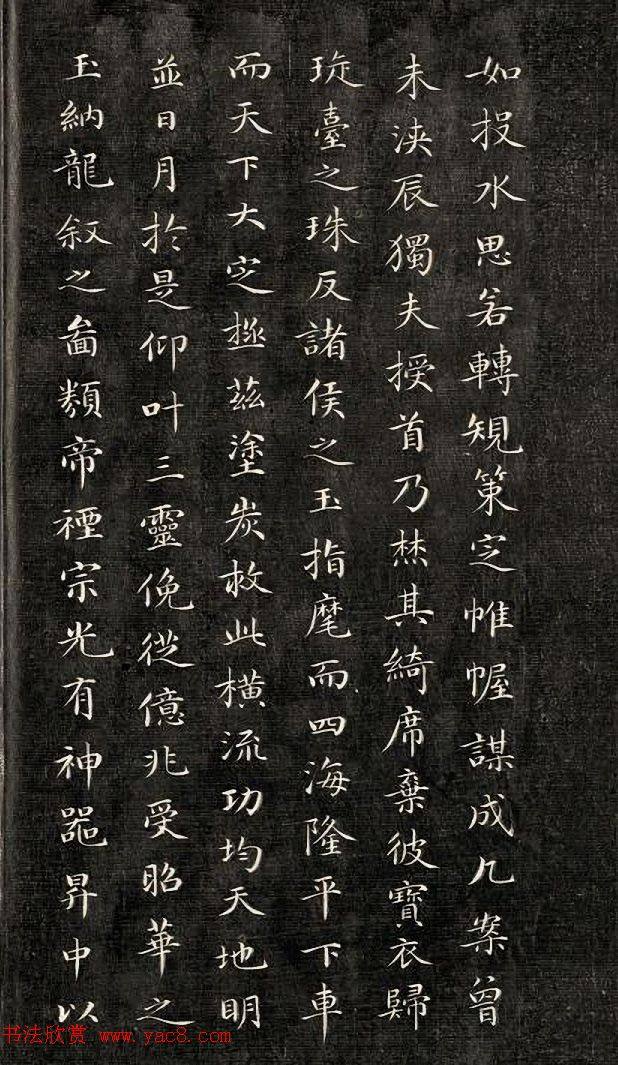 如投水思若轉規策定帷幄謀成几案曾
未浹辰獨夫授首乃焚其綺席棄彼寶衣歸
琁臺之珠反諸侯之玉指麾而四海隆平下車
而天下大定拯茲塗炭救此橫流功均天地明
並日月於是仰叶三靈俛從億兆受昭華之
玉納龍敘之啚類帝禋宗光有神器昇中以
书法欣赏 www.yac8.com